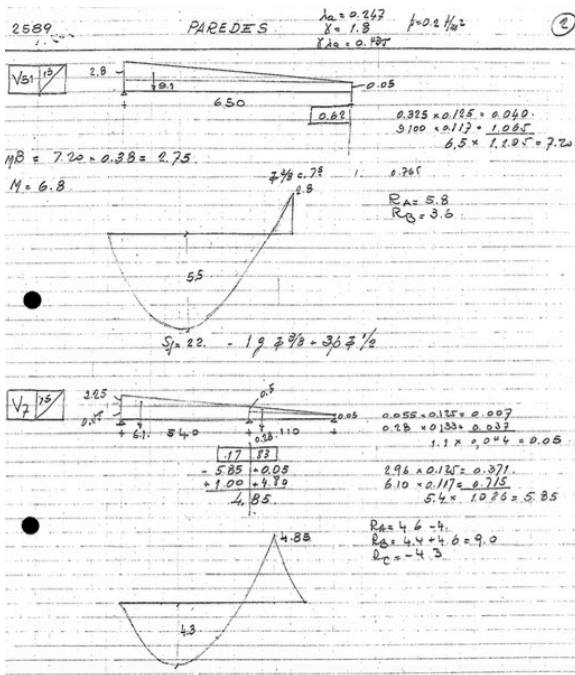 2589
PAREDES
λa = 0.247
γ = 1.8
γλa = 0.435
p=0.2 t/m²
2
V51 15
2.8
9.1
0.05
6.50
0.62
0.325 x 0.125 = 0.040
9.100 x 0.117 = 1.065
6,5 x 1.105 = 7.20
MB = 7.20 x 0.38 = 2.75
M = 6.8
0.765
2.8
RA = 5.8
RB = 3.6
5,5
V7 15
2.25
0.5
0.05
6.1
540
0.28
110
0.055 x 0.125 = 0.007
0.28 x 0,133 = 0.037
1.1 x 0,044 = 0.05
.17 83
- 5.85 +0.05
+1.00 +4.80
4.85
2.96 x 0.125 = 0.371
6.10 x 0.117 = 0.715
5.4 x 1.086 = 5.85
RA = 4.6 -4.
RB = 4.4 + 4.6 = 9.0
RC = -4.3
4.85
4.3